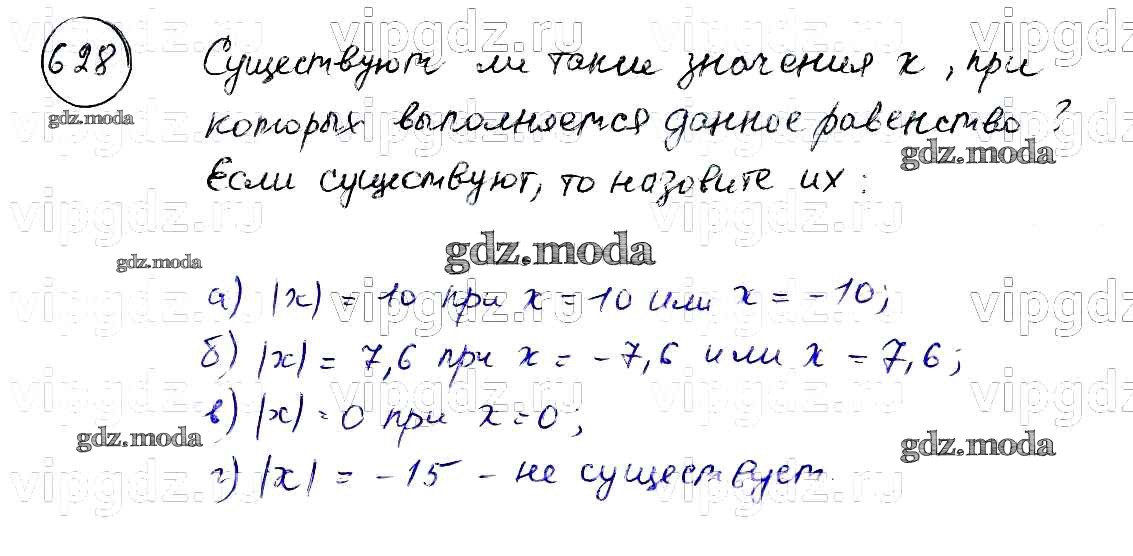 628
Существуют ли такие значения x, при
которых выполняется данное равенство?
Если существуют, то назовите их:
а) |x| = 10 при x = 10 или x = -10;
б) |x| = 7,6 при x = -7,6 или x = 7,6;
в) |x| = 0 при x = 0;
г) |x| = -15 - не существует.
gdz.moda
gdz.moda
gdz.moda
gdz.moda
gdz.moda
gdz.moda
vipgdz.ru